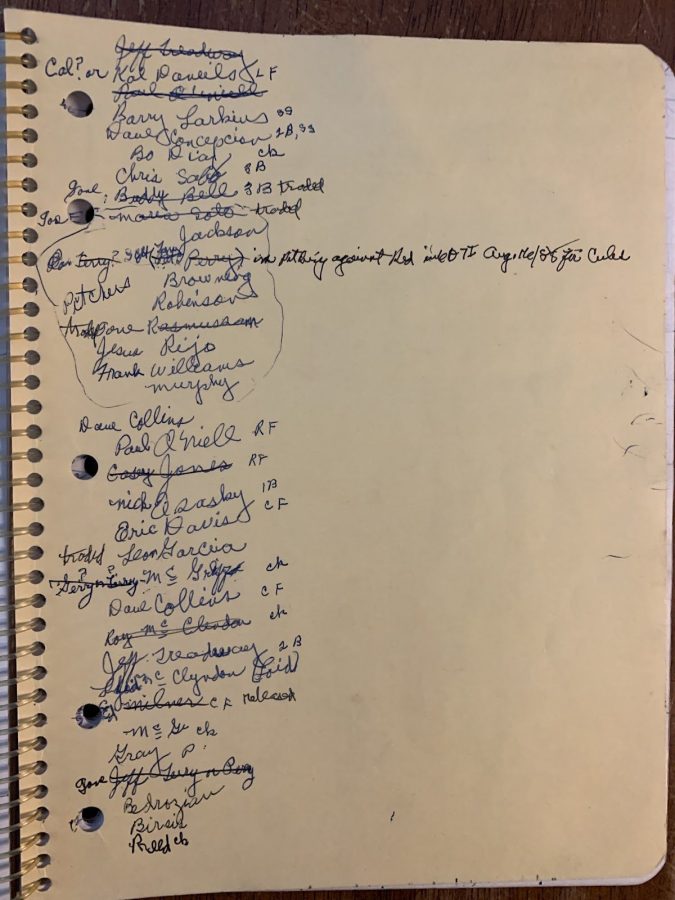 Jeff Treadway
Cal? or Kal Daneils LF
Paul O'Niell
Barry Larkins SS
Dave Concepcion 2B, SS
Bo Diaz ck
Chris Sabo 3B
gone, Buddy Bell 3B traded
mario Soto traded
Jackson
Terry? Perry) im Pitching against Red Aug 16/88 for Cubs
Pitchers Browning
Robinson
gone Rasmussam
Jesus Rijo
Frank Williams
murphy
Dave Collins
Paul O'Niell RF
Casey Jones RF
nick Esasky 1B
Eric Davis CF
traded Leon Garcia
? ?
Gerry or Terry Mc Griff ck
Dave Collins CF
Roy Mc Clendon ck
Jeff Treadway 2B
Mc Clyndon (Loid)
milner CF released
Mc Gr ck
Gray P.
gone Jeff Terry or Perry
Bedrozian
Birsis
Reed ck